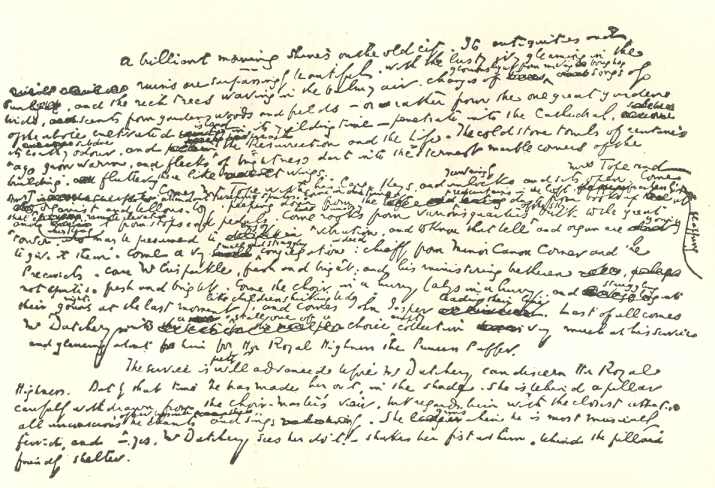 A brilliant morning shines on the old city. Its antiquities and
ruins are surpassingly beautiful, with the lusty ivy gleaming in the
sun, and the rich trees waving in the balmy air. Changes of glorious light from moving boughs, songs of
birds, scents from gardens woods and fields – or rather from the one great garden
of the whole cultivated island in its yielding time – penetrate into the Cathedral, subdue
its earthy odour, and preach the Resurrection and the Life. The cold stone tombs of centuries
ago grow warm, and flecks of brightness dart into the sternest marble corners of the
building, fluttering there like wings.
Comes Mr Tope with his large keys, and yawningly unlocks and sets open. Come Mrs Tope and
attendant sweeping sprites. Come, in due time, organist and bellows boy, peeping down from the red curtains in the loft, fearlessly flapping dust from books up at
that remote elevation, and whisking it from stops and pedals. Come rooks from various quarters back to the great
tower who may be presumed to enjoy vibration, and to know that bell and organ are going
to give it them. Come a very small and straggling congregation indeed: chiefly from Minor Canon Corner and the
Precincts. Come Mr Crisparkle, fresh and bright; and his ministering brethren
not quite so fresh and bright. Come the choir in a hurry (always in a hurry, and struggling into
their nightgowns at the last moment, like children shirking bed), and comes John Jasper leading their line. Last of all comes
Mr Datchery into a stall, one of a choice empty collection very much at his service
and glancing about him for Her Royal Highness the Princess Puffer.
The service is pretty well advanced before Mr Datchery can discern Her Royal
Highness. But by that time he has made her out, in the shade. She is behind a pillar
carefully withdrawn from the choir-master's view, but regards him with the closest attention
all unconscious of her presence, he chants and sings. She grins when he is most musically
fervid, and – yes, Mr Datchery sees her do it! – shakes her fist at him, behind the pillar's
friendly shelter.